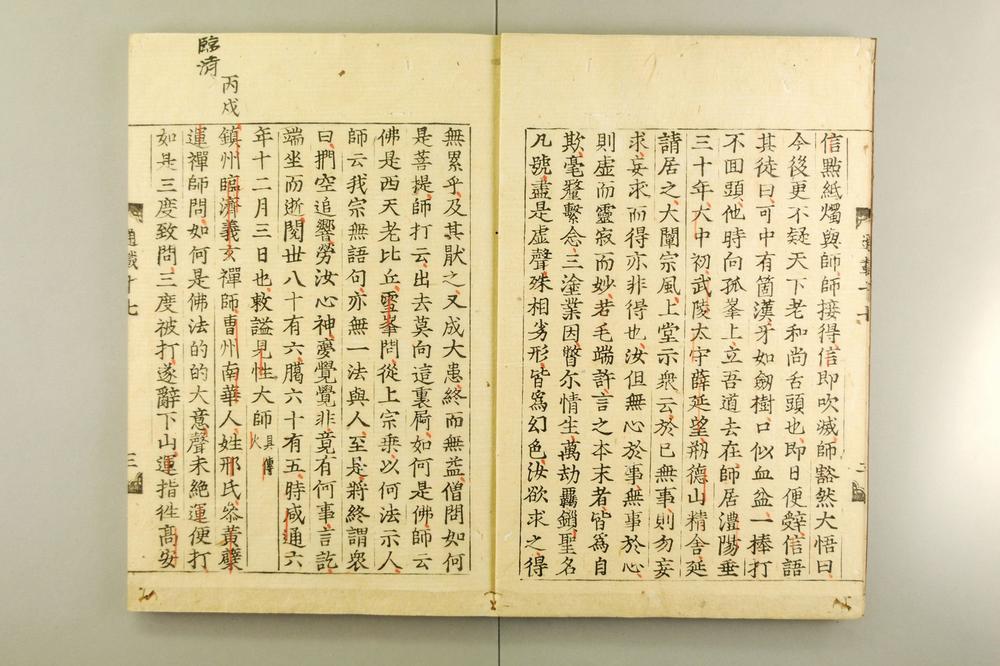 信點紙燭與師師接得信即吹滅師豁然大悟曰
今後更不疑天下老和尚舌頭也即日便辤信語
其徒曰可中有箇漢牙如劒樹口似血盆一捧打
不回頭他時向孤峯上立吾道去在師居澧陽垂
三十年大中初武陵太守薛延望剏德山精舍延
請居之大闡宗風上堂示衆云於已無事則勿妄
求妄求而得亦非得也汝但無心於事無事於心
則虛而靈寂而妙若毛端許言之本末者皆爲自
欺毫氂繫念三塗業因瞥尔情生萬劫覊鎖聖名
凡號盡是虛聲殊相劣形皆爲幻色汝欲求之得
無累乎及其猒之又成大患終而無益僧問如何
是菩提師打云出去莫向這裏屙如何是佛師云
佛是西天老比丘雪峯問從上宗乘以何法示人
師云我宗無語句亦無一法與人至是將終謂衆
曰捫空追響勞汝心神夢覺覺非竟有何事言訖
端坐而逝閱世八十有六臈六十有五時咸通六
年十二月三日也敕謚見性大師
具傳
火
丙戍
臨濟
鎮州臨濟義玄禪師曹州南華人姓邢氏叅黃檗
運禪師問如何是佛法的的大意聲未絕運便打
如是三度致問三度被打遂辭下山運指徃髙安
通載十七
三